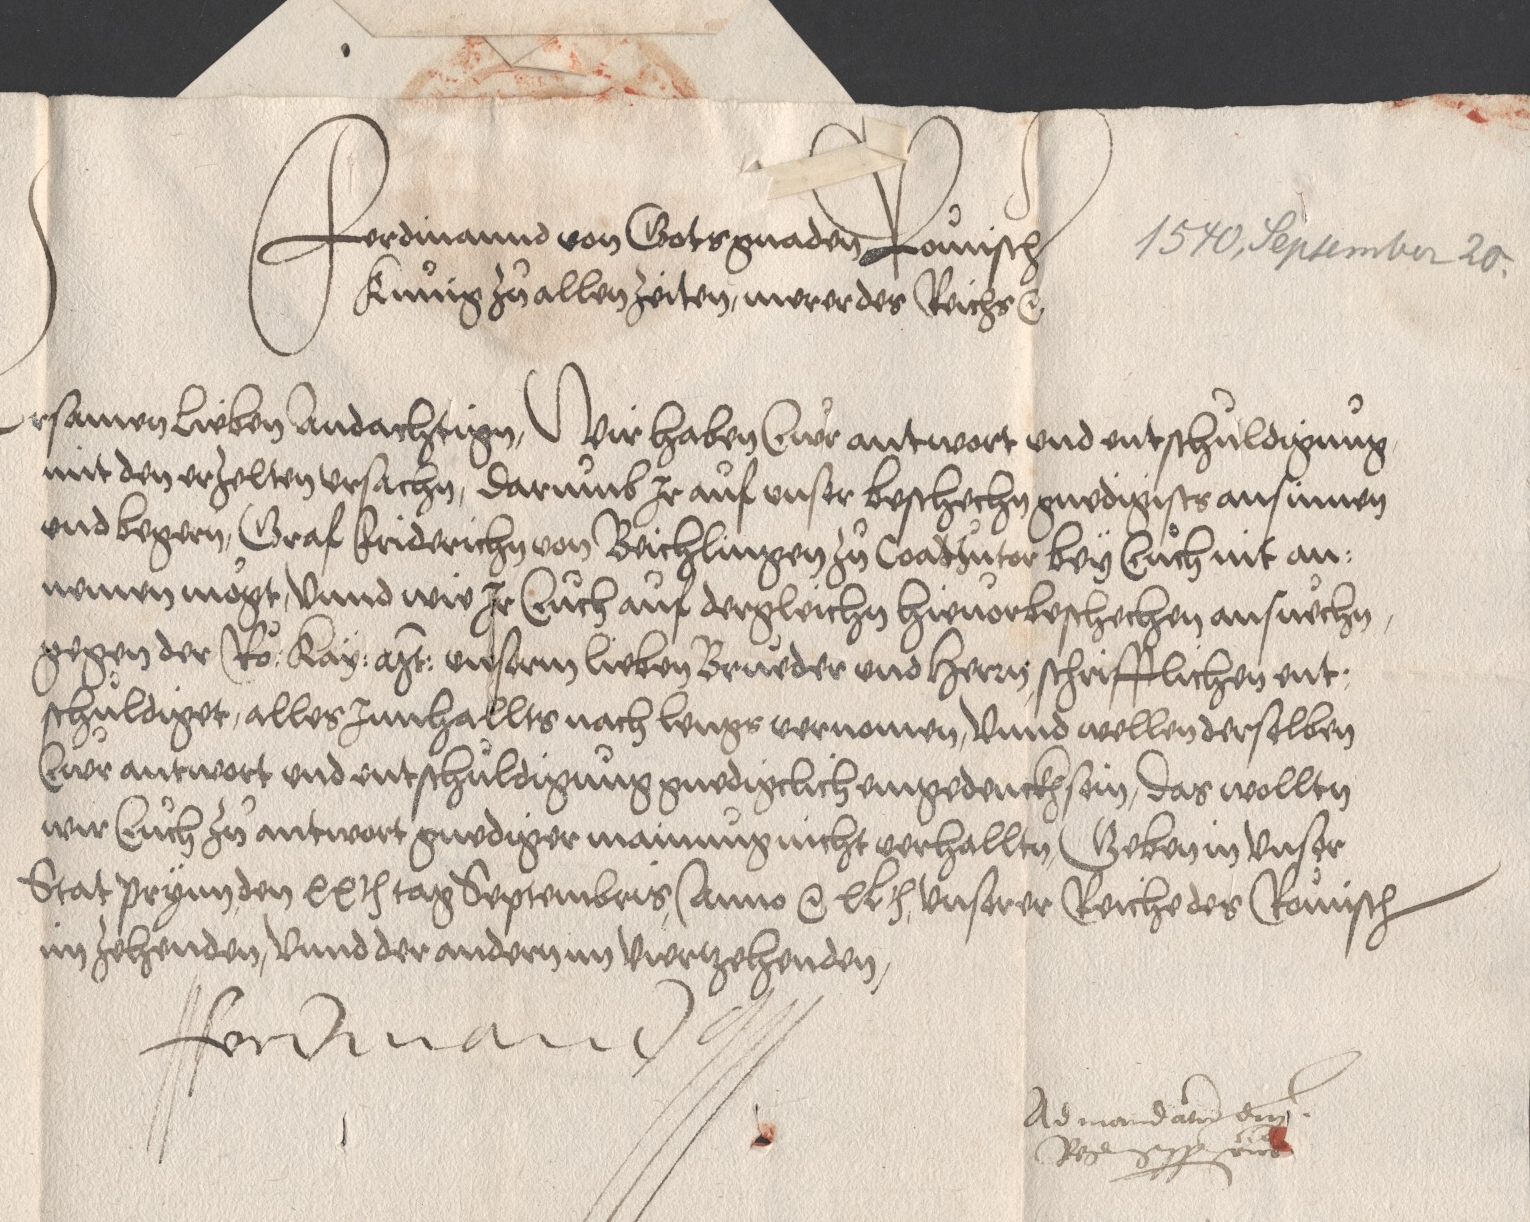 Ferdinannd von Gots gnaden Römisch
Kunig zu allen Zeiten, merer des Reichs &
1540, September 20.
Ersamen lieben Andachtign, Wir haben Ewr antwort und entschuldigung
mit den erzelten ursachn, darumb Ir auf unser beschechn gnedigists ansinnen
und begern, Graf Friderichn von Beichlingen zu Coadiutor bey Euch nit an:
nemen mögt, Unnd wie Ir Euch auf dergleichn hievor beschechen ansuechn,
gegen der Rö: Kay: Mt: unserm lieben Brueder und Herrn, schrifftlichen ent:
schuldiget, alles Innhallts nach lengs vernomen, Unnd wellen derselben
Ewr antwort und entschuldigung gnedigclich eingedenckh sein, Das wollten
wir Euch zu antwort gnediger mainung nicht verhalltn, Geben in Unser
Stat Prynn, den xxth tag Septembris, Anno & xlth, Unserer Reiche des Römisch
im zehenden, Unnd der andern im Viertzehenden,
Ferdinand
Ad mandatum dni
Regis